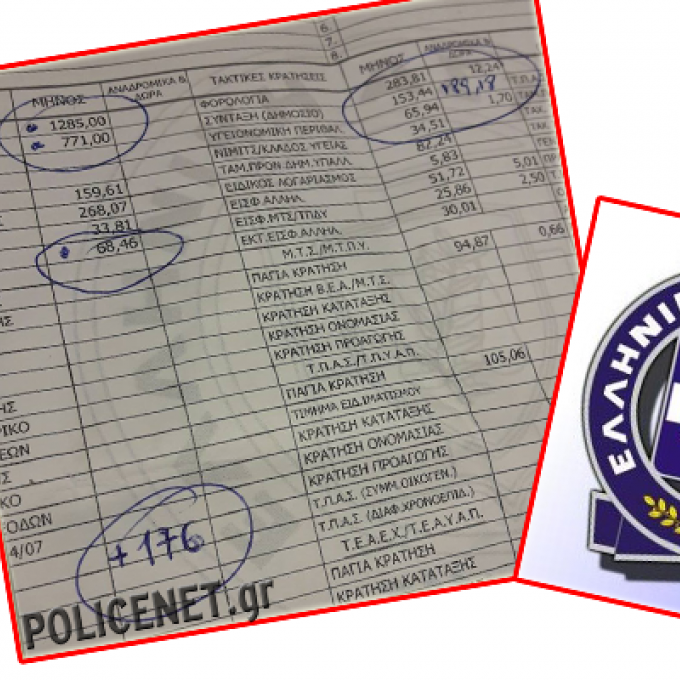 6.
7.
8.
ΜΗΝΟΣ ΑΝΑΔΡΟΜΙΚΑ & ΔΩΡΑ ΤΑΚΤΙΚΕΣ ΚΡΑΤΗΣΕΙΣ ΜΗΝΟΣ ΑΝΑΔΡΟΜΙΚΑ &
1285,00 ΦΟΡΟΛΟΓΙΑ 283,81 12,24
771,00 ΣΥΝΤΑΞΗ (ΔΗΜΟΣΙΟ) 153,44 189,18
ΥΓΕΙΟΝΟΜΙΚΗ ΠΕΡΙΘΑΛ. 65,94 1,70
ΝΙΜΙΤΣ/ΚΛΑΔΟΣ ΥΓΕΙΑΣ 34,51
159,61 ΤΑΜ.ΠΡΟΝ.ΔΗΜ.ΥΠΑΛΛ. 82,24
268,07 ΕΙΔΙΚΟΣ ΛΟΓΑΡΙΑΣΜΟΣ 5,83
33,81 ΕΙΣΦ.ΑΛΛΗΛ. 51,72 5,01
68,46 ΕΙΣΦ.ΜΤΣ/ΤΠΔΥ 25,86 2,50
ΕΚΤ.ΕΙΣΦ.ΑΛΛΗΛ. 30,01
Μ.Τ.Σ./Μ.Τ.Π.Υ.
ΠΑΓΙΑ ΚΡΑΤΗΣΗ 94,87 0,66
ΚΡΑΤΗΣΗ Β.Ε.Α./Μ.Τ.Σ.
ΚΡΑΤΗΣΗ ΚΑΤΑΤΑΞΗΣ
ΚΡΑΤΗΣΗ ΟΝΟΜΑΣΙΑΣ
ΚΡΑΤΗΣΗ ΠΡΟΑΓΩΓΗΣ
Τ.Π.Α.Σ./Τ.Π.Υ.Α.Π.
ΠΑΓΙΑ ΚΡΑΤΗΣΗ 105,06
ΤΙΜΗΜΑ ΕΙΔ.ΙΜΑΤΙΣΜΟΥ
ΚΡΑΤΗΣΗ ΚΑΤΑΤΑΞΗΣ
ΚΡΑΤΗΣΗ ΟΝΟΜΑΣΙΑΣ
ΚΡΑΤΗΣΗ ΠΡΟΑΓΩΓΗΣ
4/07 Τ.Π.Α.Σ. (ΣΥΜΜ.ΟΙΚΟΓΕΝ.)
+176 Τ.Π.Α.Σ. (ΔΙΑΦ.ΧΡΟΝΟΕΠΙΔ.)
Τ.Ε.Α.Ε.Χ./Τ.Ε.Α.Υ.Α.Π.
ΠΑΓΙΑ ΚΡΑΤΗΣΗ
ΚΡΑΤΗΣΗ ΚΑΤΑΤΑΞΗΣ
POLICENET.gr
ΕΛΛΗΝΙ